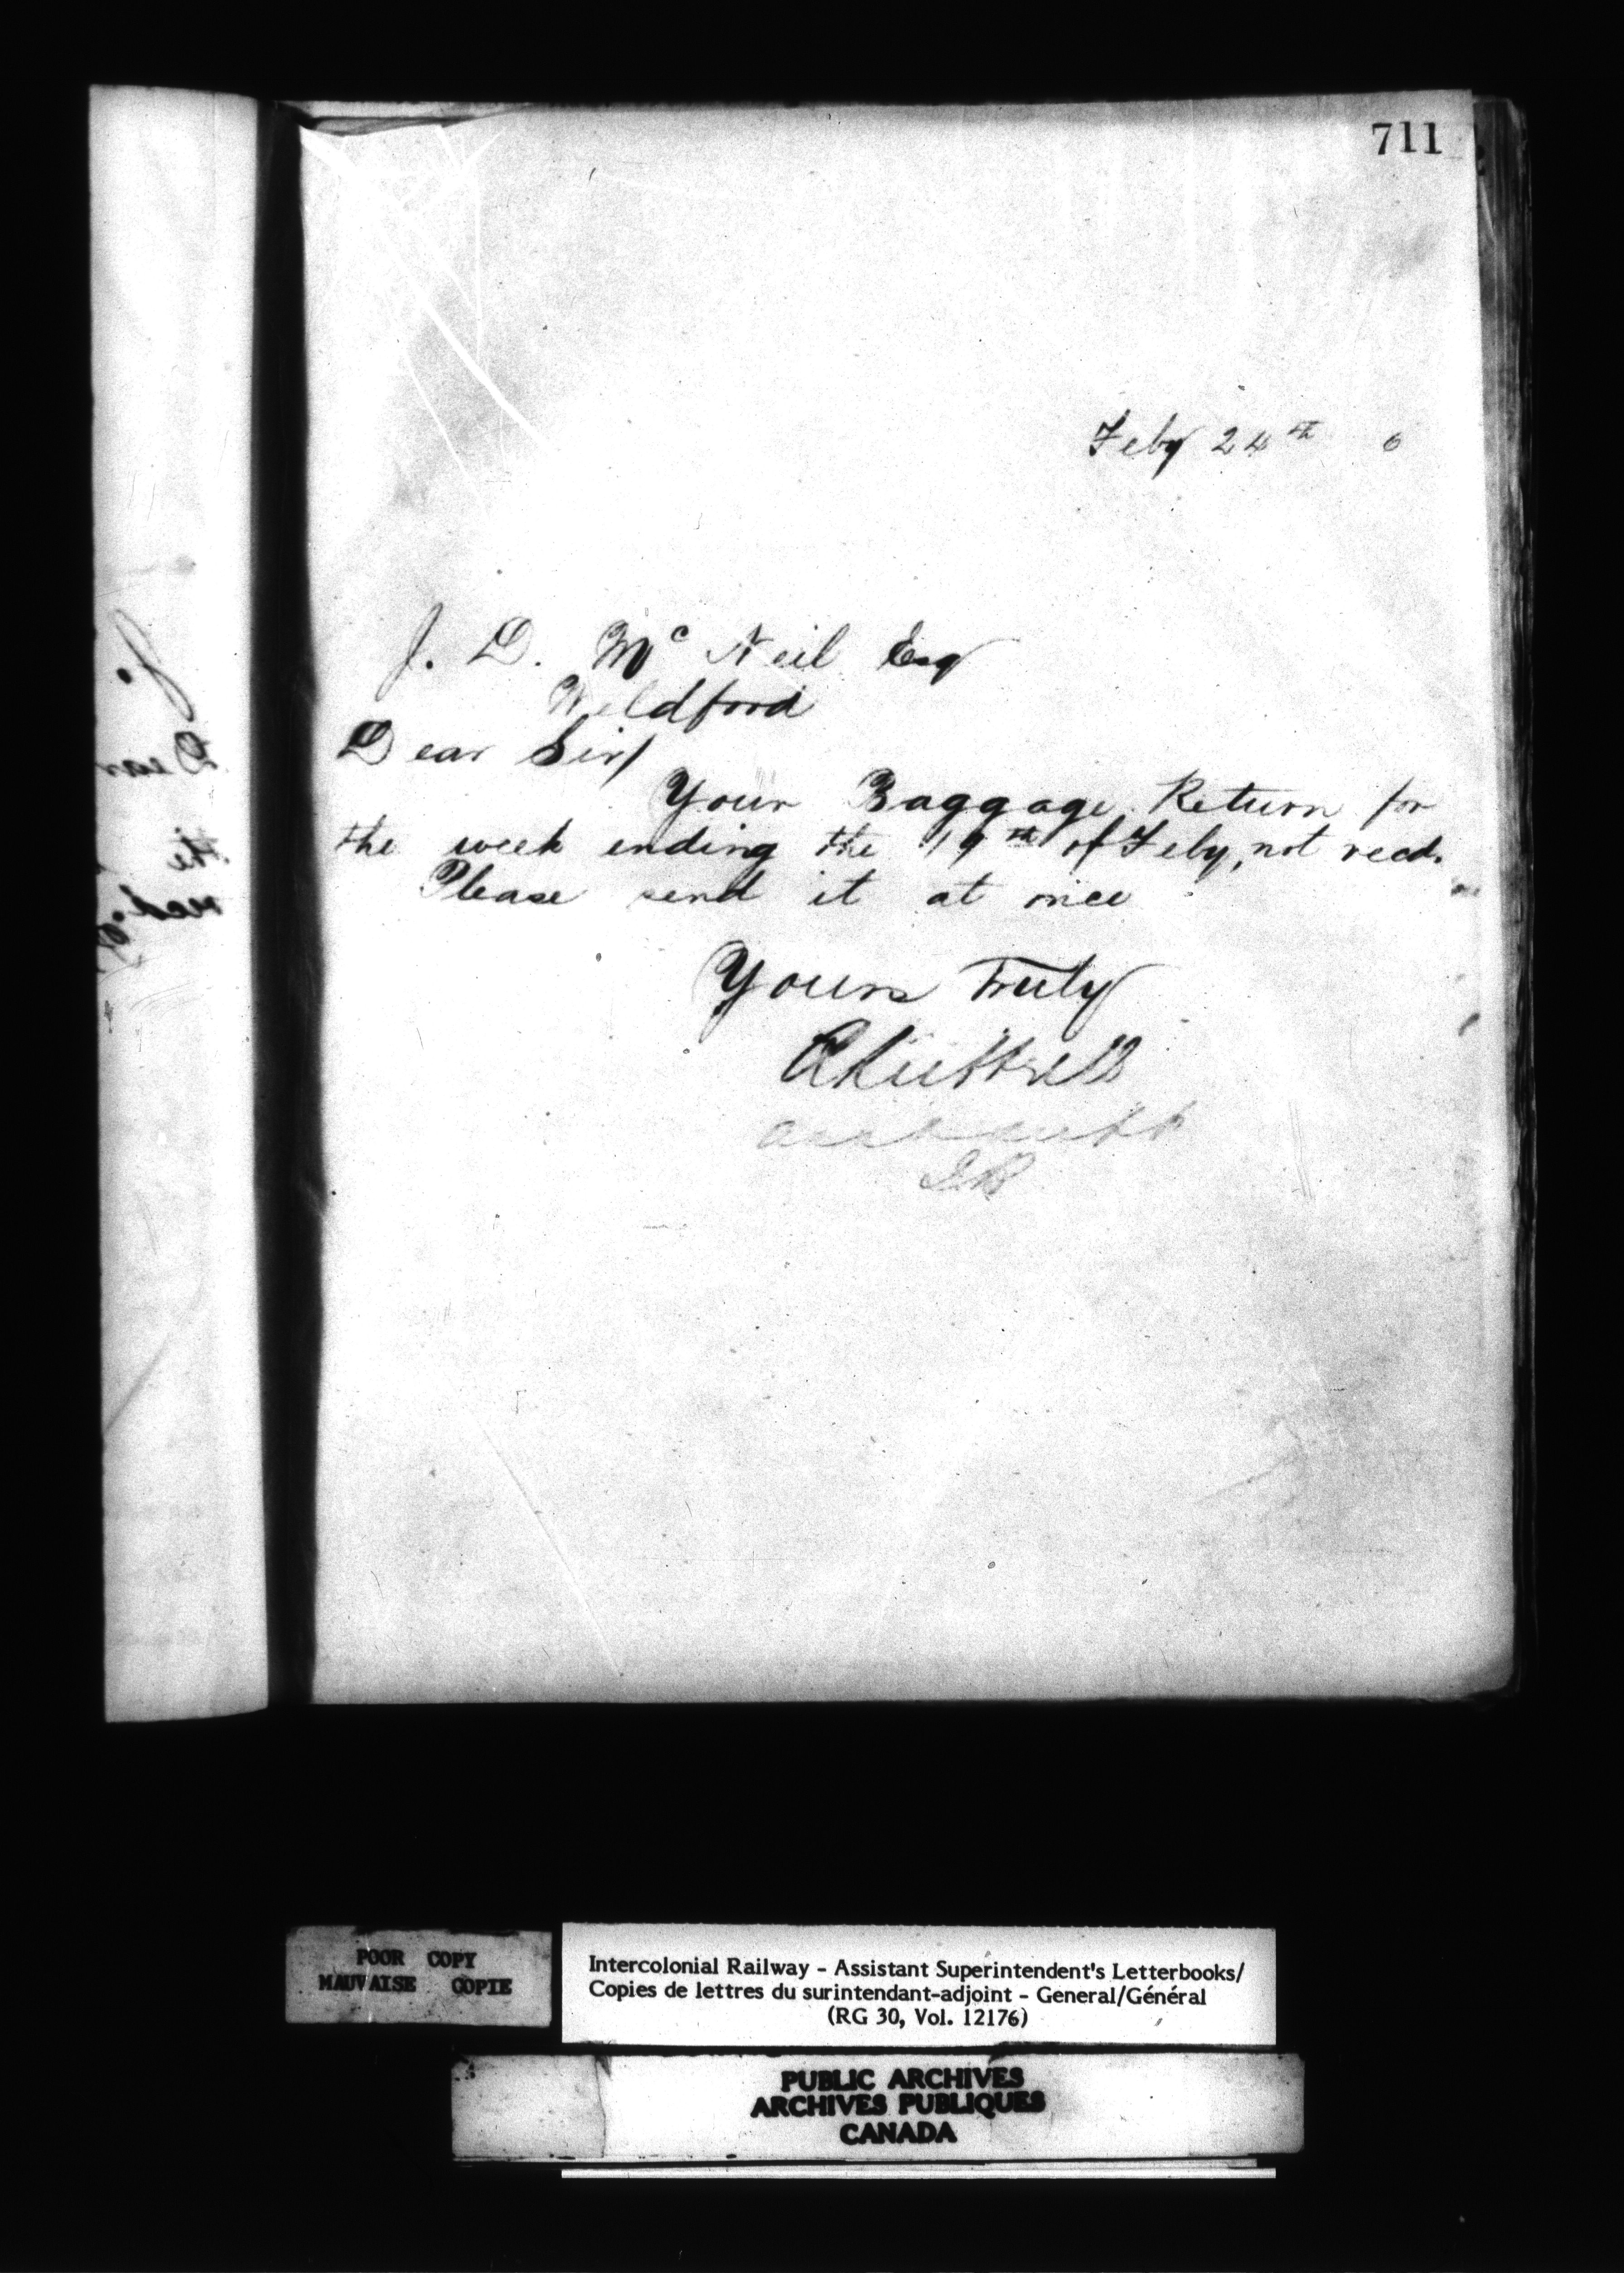 711
Feby 24th 6
J. D. Mc Neil Esq
Weldford
Dear Sir/
Your Baggage Return for
the week ending the 19th of Feby, not recd.
Please send it at once
Yours Truly
POOR COPY
MAUVAISE COPIE
Intercolonial Railway - Assistant Superintendent's Letterbooks/
Copies de lettres du surintendant-adjoint - General/Général
(RG 30, Vol. 12176)
PUBLIC ARCHIVES
ARCHIVES PUBLIQUES
CANADA